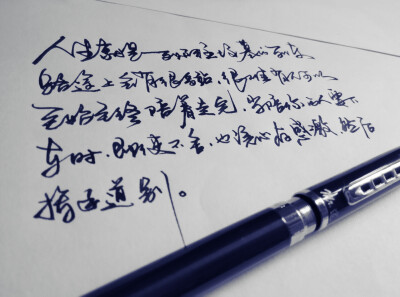 人生就是一列开往坟墓的列车
路途上会有很多站，很难有人可以
至始至终陪着走完，当陪你的人要下
车时，即使不舍，也该心存感激，然后
挥手道别。